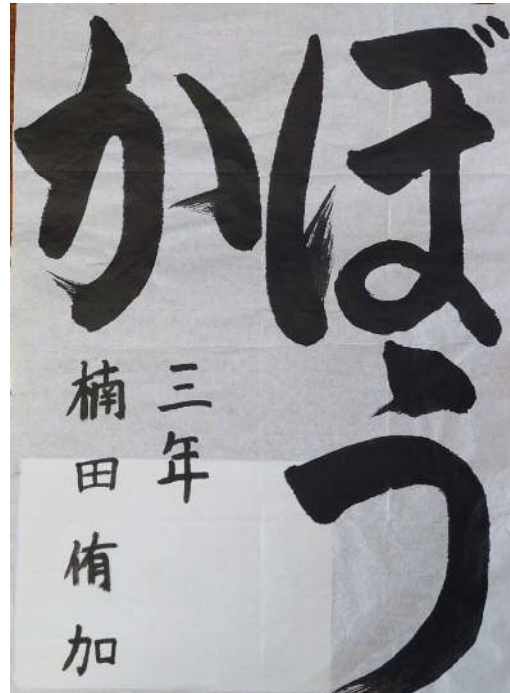 ぼう
か
三年
楠田侑加